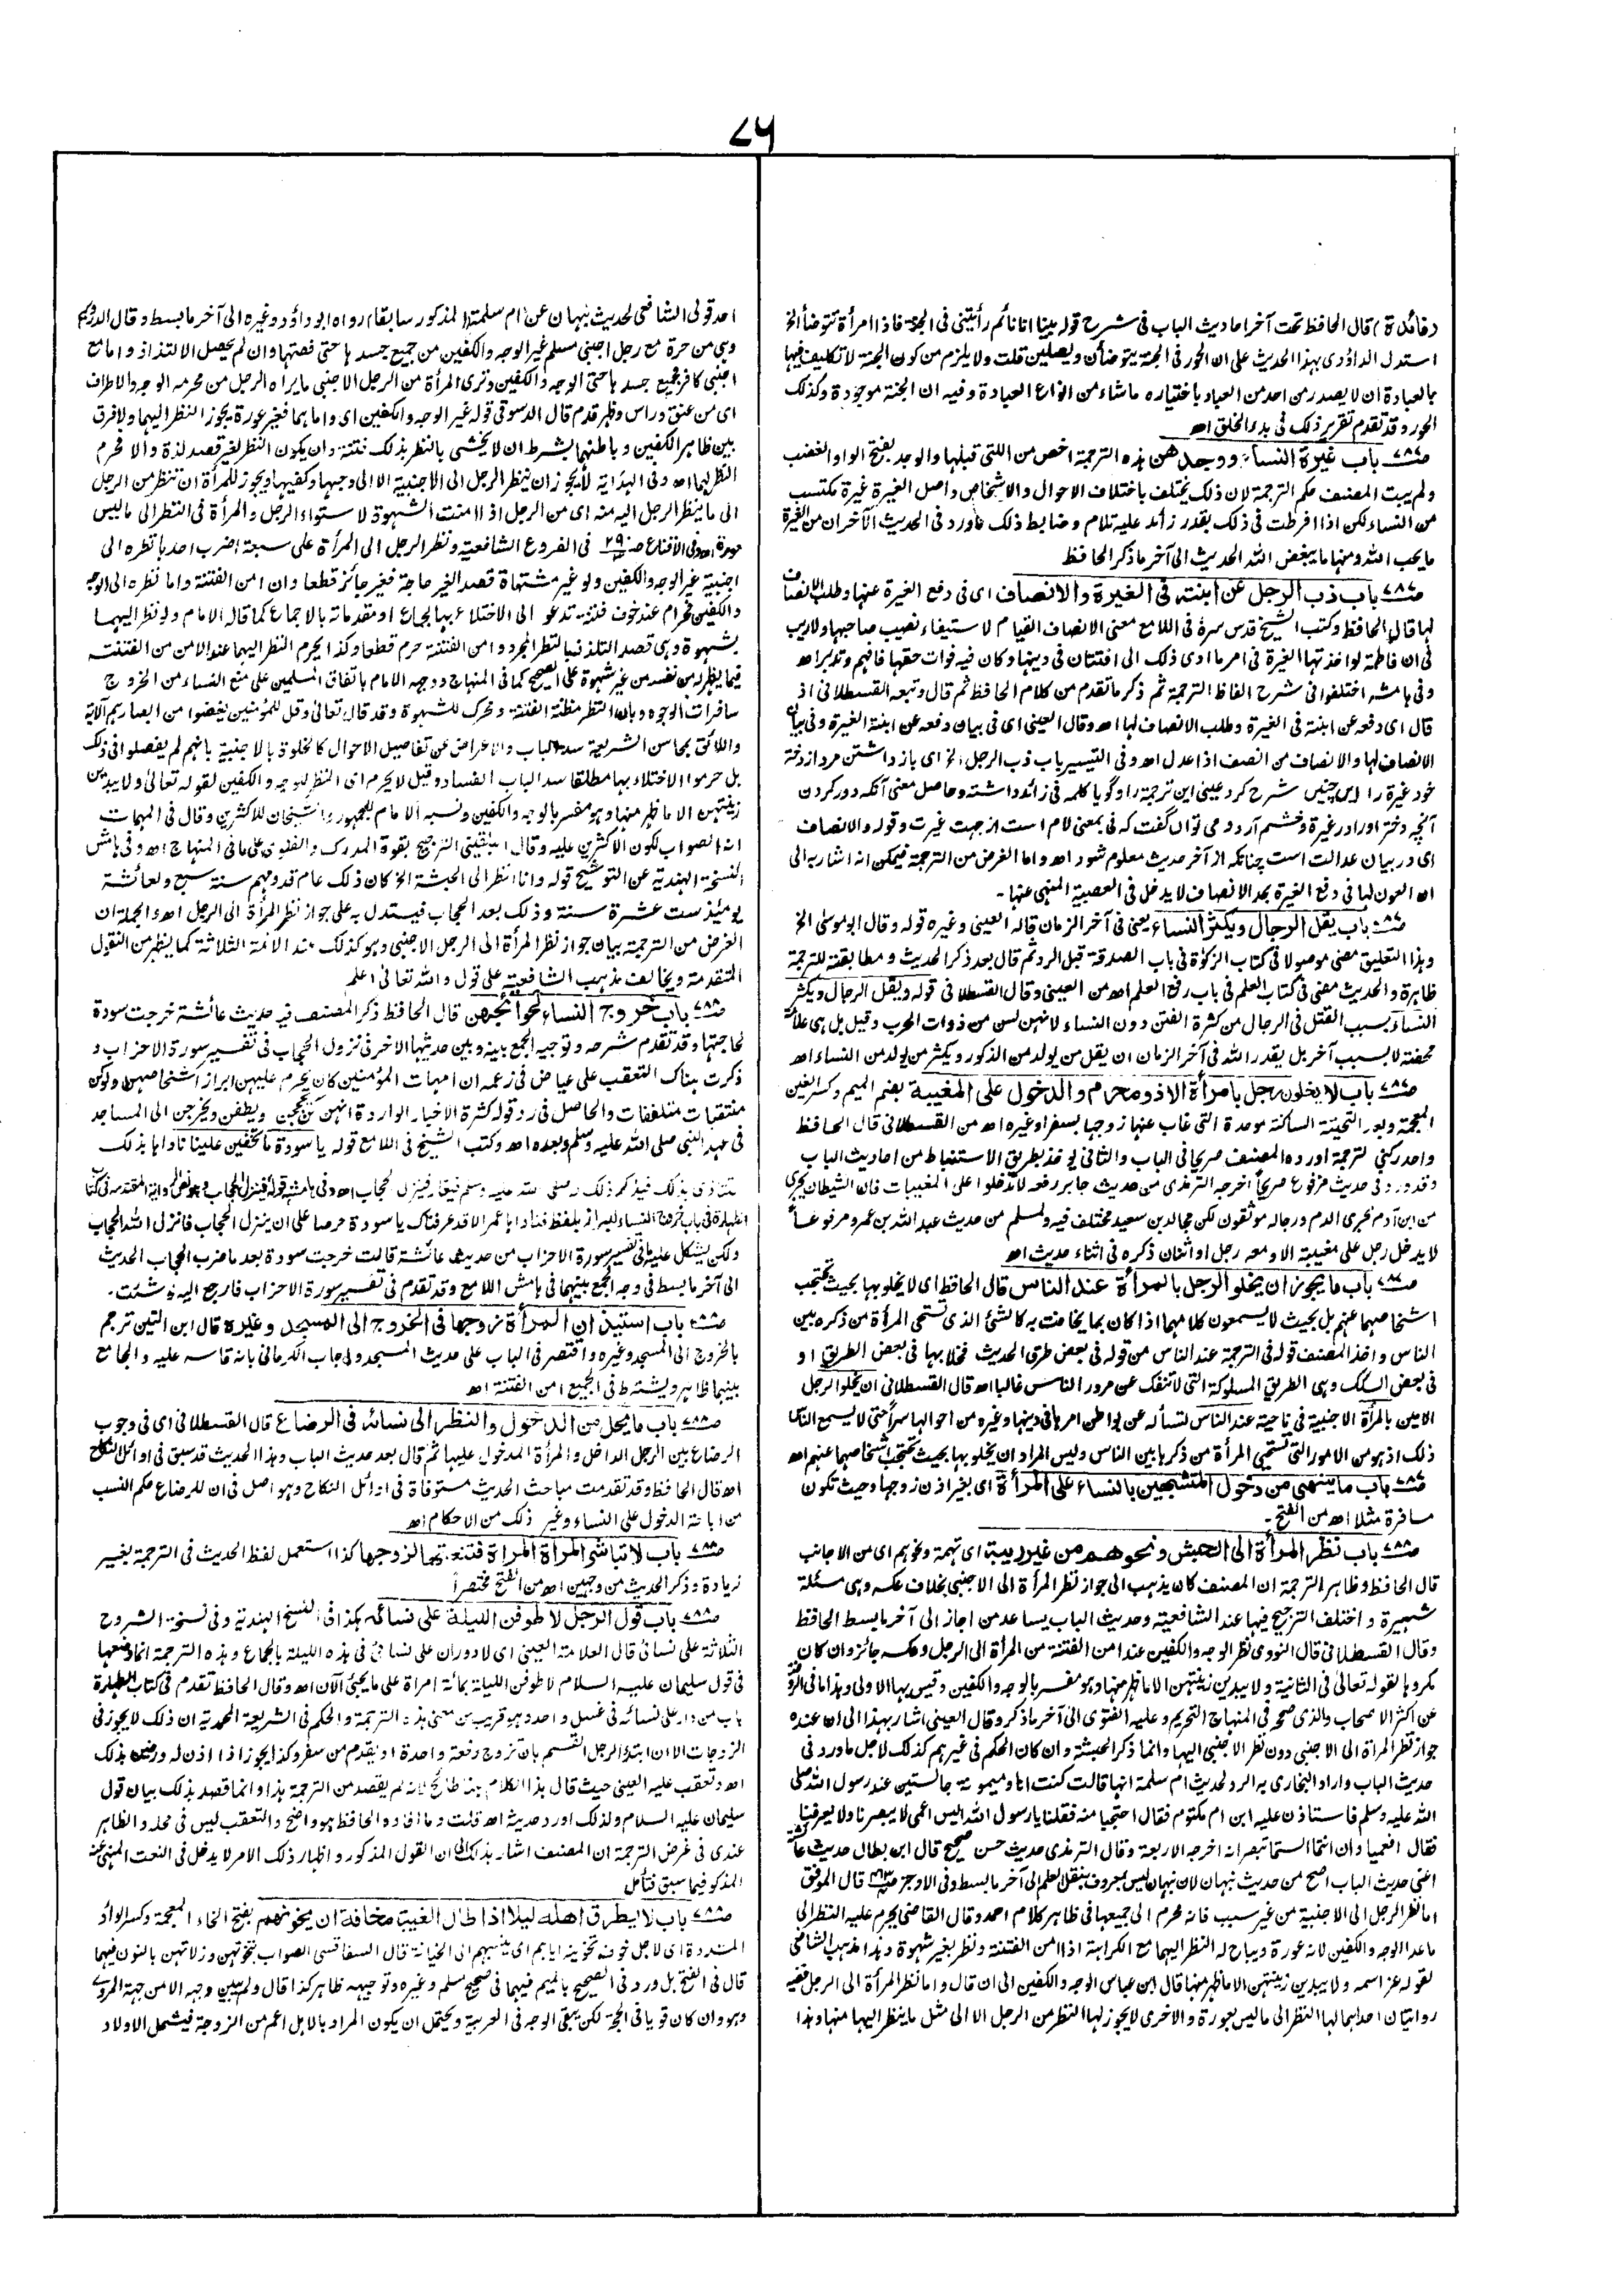 ۷۶
(فائدة) قال الحافظ تحت آخر احاديث الباب فى شرح قوله بينا انا نائم رأيتنى فى الجنة فاذا امرأة تتوضأ الخ
استدل الداؤدى بهذا الحديث على ان الحور فى الجنة يتوضأن ويصلين قلت ولا يلزم من كون الجنة لا تكليف فيها
بالعبادة ان لا يصدر من احد من العباد باختياره ماشاء من انواع العبادة وفيه ان الجنة موجودة وكذلك
الحور وقد تقدم تقرير ذلك فى بدء الخلق اھ
باب غيرة النساء ووجدهن هذه الترجمة اخص من اللتى قبلها والوجد بفتح الواو الغضب
ولم يبت المصنف حكم الترجمة لان ذلك يختلف باختلاف الاحوال والاشخاص واصل الغيرة غيرة مكتسب
من النساء لكن اذا افرطت فى ذلك بقدر زائد عليه تلام وضابط ذلك ما ورد فى الحديث الآخر ان من الغيرة
ما يحب الله ومنها ما يبغض الله الحديث الى آخر ما ذكر الحافظ
باب ذب الرجل عن ابنته فى الغيرة والانصاف اى فى دفع الغيرة عنها وطلب الانصاف
لها قاله الحافظ وكتب الشيخ قدس سره فى اللامع معنى الانصاف القيام لاستيفاء نصيب صاحبها ولا ريب
فى ان فاطمة لو اخذتها الغيرة فى امر ما ادى ذلك الى افتتان فى دينها وكان فيه فوات حقها فافهم وتدبر اھ
وفى هامشه اختلفوا فى شرح الفاظ الترجمة ثم ذكر ما تقدم من كلام الحافظ ثم قال وتبعه القسطلانى اذ
قال اى دفعه عن ابنته فى الغيرة وطلب الانصاف لها اھ وقال العينى اى فى بيان دفعه عن ابنته الغيرة وفى بيان
الانصاف لها والانصاف من انصف اذا عدل اھ وفى التيسير باب ذب الرجل الخ اى باز داشتن مرد از دخته
خود غيرة را اين چنيں شرح كرد عينى اين ترجمة را و گويا كلمه فى زائد داشته وحاصل معنى آنكه دور كردن
آنچه دختر او را در غيرة وخشم آرد و مى تواں گفت كه فى بمعنى لام است از جهت غيرت وقوله والانصاف
اى در بيان عدالت است چنانكه از آخر حديث معلوم شود اھ واما الغرض من الترجمة فيمكن انه اشار به الى
ان العون لها فى دفع الغيرة بعد الانصاف لا يدخل فى العصبية المنهى عنها ۔
باب يقل الرجال ويكثر النساء يعنى فى آخر الزمان قاله العينى وغيره قوله وقال ابو موسى الخ
وهذا التعليق مضى موصولا فى كتاب الزكوة فى باب الصدقة قبل الرد ثم قال بعد ذكر الحديث ومطابقته للترجمة
ظاهرة والحديث مضى فى كتاب العلم فى باب رفع العلم اھ من العينى وقال القسطلانى فى قوله ويقل الرجال ويكثر
النساء بسبب القتل فى الرجال من كثرة الفتن دون النساء لانهن لسن من ذوات الحرب وقيل بل هى علامة
محضة لا بسبب آخر بل يقدر الله فى آخر الزمان ان يقل من يولد من الذكور ويكثر من يولد من النساء اھ
باب لا يخلون رجل بامرأة الا ذو محرم والدخول على المغيبة بضم الميم وكسر الغين
المعجمة وبعد التحيتة الساكنة موحدة التى غاب عنها زوجها بسفر او غيره اھ من القسطلانى قال الحافظ
واحد ركنى الترجمة اورده المصنف صريحا فى الباب والثانى يؤخذ بطريق الاستنباط من احاديث الباب
وقد ورد فى حديث مرفوع صريحا اخرجه الترمذى من حديث جابر رفعه لا تدخلوا على المغيبات فان الشيطان يجرى
من ابن آدم مجرى الدم ورجاله موثقون لكن مجالد بن سعيد مختلف فيه ولمسلم من حديث عبد الله بن عمرو مرفوعا
لا يدخل رجل على مغيبة الا ومعه رجل او اثنان ذكره فى اثناء حديث اھ
باب ما يجوز ان يخلو الرجل بالمرأة عند الناس قال الحافظ اى لا يخلو بها بحيث تحتجب
اشخاصهما عنهم بل بحيث لا يسمعون كلامهما اذا كان بما يخافت به كالشئ الذى تستحى المرأة من ذكره بين
الناس واخذ المصنف قوله فى الترجمة عند الناس من قوله فى بعض طرق الحديث فخلا بها فى بعض الطريق او
فى بعض السكك وهى الطريق المسلوكة التى لا تنفك عن مرور الناس غالبا اھ قال القسطلانى ان يخلو الرجل
الامين بالمرأة الاجنبية فى ناحية عند الناس لتسأله عن بواطن امرها فى دينها وغيره من احوالها سرا حتى لا يسمع الناس
ذلك اذ هو من الامور التى تستحيى المرأة من ذكرها بين الناس وليس المراد ان يخلو بها بحيث تحتجب اشخاصهما عنهم اھ
باب ما ينهى من دخول المتشبهين بالنساء على المرأة اى بغير اذن زوجها وحيث تكون
مسافرة مثلا اھ من الفتح ۔
باب نظر المرأة الى الحبش ونحوهم من غير ريبة اى تهمة ونحوهم اى من الاجانب
قال الحافظ وظاهر الترجمة ان المصنف كان يذهب الى جواز نظر المرأة الى الاجنبى بخلاف عكسه وهى مسئلة
شهيرة واختلف الترجيح فيها عند الشافعية وحديث الباب يساعد من اجاز الى آخر ما بسط الحافظ
وقال القسطلانى قال النووى نظر الوجه والكفين عند امن الفتنة من المرأة الى الرجل وعكسه جائز وان كان
مكروها لقوله تعالى فى الثانية ولا يبدين زينتهن الا ما ظهر منها وهو مفسر بالوجه والكفين وقيس بها الاولى وهذا ما فى الروضة
عن اكثر الاصحاب والذى صححه فى المنهاج التحريم وعليه الفتوى الى آخر ما ذكر وقال العينى اشار بهذا الى ان عنده
جواز نظر المرأة الى الاجنبى دون نظر الاجنبى اليها وانما ذكر الحبشة وان كان الحكم فى غيرهم كذلك لاجل ما ورد فى
حديث الباب واراد البخارى به الرد لحديث ام سلمة انها قالت كنت انا وميمونة جالستين عند رسول الله صلى
الله عليه وسلم فاستاذن عليه ابن ام مكتوم فقال احتجبا منه فقلنا يا رسول الله اليس اعمى لا يبصرنا ولا يعرفنا
فقال افعميا وان انتما الستما تبصرانه اخرجه الاربعة وقال الترمذى حديث حسن صحيح قال ابن بطال حديث عائشة
اعنى حديث الباب اصح من حديث نبهان لان نبهان ليس بمعروف بنقل العلم الى آخر ما بسط وفى الاوجز قال الموفق
اما نظر الرجل الى الاجنبية من غير سبب فانه محرم الى جميعها فى ظاهر كلام احمد وقال القاضى يحرم عليه النظر الى
ما عدا الوجه والكفين لانه عورة ويباح له النظر اليهما مع الكراهة اذا امن الفتنة ونظر بغير شهوة وهذا مذهب الشافعى
لقوله عز اسمه ولا يبدين زينتهن الا ما ظهر منها قال ابن عباس الوجه والكفين الى ان قال واما نظر المرأة الى الرجل ففيه
روايتان احدهما لها النظر الى ما ليس بعورة والاخرى لا يجوز لها النظر من الرجل الا الى مثل ما ينظر اليها منها وهذا
احد قولى الشافعى لحديث نبهان عن ام سلمة المذكور سابقا رواه ابو داؤد وغيره الى آخر ما بسط وقال الدردير
وهى من حرة مع رجل اجنبى مسلم غير الوجه والكفين من جميع جسدها حتى قصتها وان لم يحصل الالتذاذ واما مع
اجنبى كافر فجميع جسدها حتى الوجه والكفين وترى المرأة من الرجل الاجنبى ما يراه الرجل من محرمه الوجه والاطراف
اى من عنق وراس وظهر قدم قال الدسوقى قوله غير الوجه والكفين اى واما هما فغير عورة يجوز النظر اليهما ولا فرق
بين ظاهر الكفين وباطنهما بشرط ان لا يخشى بالنظر بذلك فتنة وان يكون النظر لغير قصد لذة والا محرم
النظر لهما اھ وفى الهداية لا يجوز ان ينظر الرجل الى الاجنبية الا الى وجهها وكفيها ويجوز للمرأة ان تنظر من الرجل
الى ما ينظر الرجل اليه منه اى من الرجل اذا امنت الشهوة لاستواء الرجل والمرأة فى النظر الى ما ليس
عورة اھ وفى الاقناع صـ۲۹ فى الفروع الشافعية ونظر الرجل الى المرأة على سبعة اضرب احدها نظره الى
اجنبية غير الوجه والكفين ولو غير مشتهاة قصد الغير حاجة فغير جائز قطعا وان امن الفتنة واما نظره الى الوجه
والكفين فحرام عند خوف فتنة تدعو الى الاختلاء بها لجماع او مقدماته بالاجماع كما قاله الامام ولو نظر اليهما
بشهوة وهى قصد التلذذ بالنظر المجرد وامن الفتنة حرم قطعا وكذا يحرم النظر اليهما عند الامن من الفتنة
فيما يظهر له من نفسه من غير شهوة على الصحيح كما فى المنهاج ووجهه الامام باتفاق المسلمين على منع النساء من الخروج
سافرات الوجوه وبان النظر مظنة الفتنة ومحرك للشهوة وقد قال تعالى وقل للمؤمنين يغضوا من ابصارهم الآية
واللائق بمحاسن الشريعة سد الباب والاعراض عن تفاصيل الاحوال كالخلوة بالاجنبية بانهم لم يفصلوا فى ذلك
بل حرموا الاختلاء بها مطلقا سد الباب الفساد وقيل لا يحرم اى النظر للوجه والكفين لقوله تعالى ولا يبدين
زينتهن الا ما ظهر منها وهو مفسر بالوجه والكفين ونسبه الامام للجمهور والشيخان للاكثرين وقال فى المهمات
انه الصواب لكون الاكثرين عليه وقال البلقينى الترجيح بقوة المدرك والفتوى على ما فى المنهاج اھ وفى هامش
النسخة الهندية عن التوشيح قوله وانا انظر الى الحبشة الخ كان ذلك عام قدومهم سنة سبع ولعائشة
يومئذ ست عشرة سنة وذلك بعد الحجاب فيستدل به على جواز نظر المرأة الى الرجل اھ والجملة ان
الغرض من الترجمة بيان جواز نظر المرأة الى الرجل الاجنبى وهو كذلك عند الائمة الثلاثة كما يظهر من النقول
المتقدمة ويخالف مذهب الشافعية على قول والله تعالى اعلم
باب خروج النساء لحوائجهن قال الحافظ ذكر المصنف فيه حديث عائشة خرجت سودة
لحاجتها وقد تقدم شرحه وتوجيه الجمع بينه وبين حديثها الآخر فى نزول الحجاب فى تفسير سورة الاحزاب و
ذكرت هناك التعقب على عياض فى زعمه ان امهات المؤمنين كان يحرم عليهن ابراز اشخاصهن ولو كن
منتقبات متلففات والحاصل فى رد قوله كثرة الاخبار الواردة انهن كن يحججن ويطفن ويخرجن الى المساجد
فى عهد النبى صلى الله عليه وسلم وبعده اھ وكتب الشيخ فى اللامع قوله يا سودة ما تخفين علينا ناداها بذلك
لتتاذى بذلك فيذكر ذلك رسول الله صلى الله عليه وسلم فيغار فينزل الحجاب اھ وفى هامشه قوله فينزل الحجاب وهو نص الرواية المتقدمة فى كتاب
الطهارة فى باب خروج النساء للبراز بلفظ فناداها عمر الا قد عرفناك يا سودة حرصا على ان ينزل الحجاب فانزل الله الحجاب
ولكن يشكل عليه ما فى تفسير سورة الاحزاب من حديث عائشة قالت خرجت سودة بعد ما ضرب الحجاب الحديث
الى آخر ما بسط فى وجه الجمع بينهما فى هامش اللامع وقد تقدم فى تفسير سورة الاحزاب فارجع اليه لو شئت ۔
باب استيذان المرأة زوجها فى الخروج الى المسجد وغيره قال ابن التين ترجم
بالخروج الى المسجد وغيره واقتصر فى الباب على حديث المسجد واجاب الكرمانى بانه قاسه عليه والجامع
بينهما ظاهر ويشترط فى الجميع امن الفتنة اھ
باب ما يحل من الدخول والنظر الى نساء فى الرضاع قال القسطلانى اى فى وجوب
الرضاع بين الرجل الداخل والمرأة المدخول عليها ثم قال بعد حديث الباب وهذا الحديث قد سبق فى اوائل النكاح
اھ قال الحافظ وقد تقدمت مباحث الحديث مستوفاة فى اوائل النكاح وهو اصل فى ان للرضاع حكم النسب
من اباحة الدخول على النساء وغير ذلك من الاحكام اھ
باب لا تباشر المرأة المرأة فتنعتها لزوجها كذا استعمل لفظ الحديث فى الترجمة بغير
زيادة وذكر الحديث من وجهين اھ من الفتح مختصرا
باب قول الرجل لاطوفن الليلة على نسائه هكذا فى النسخ الهندية وفى نسخة الشروح
الثلاثة على نسائى قال العلامة العينى اى لادوران على نسائى فى هذه الليلة بالجماع وهذه الترجمة انما وضعها
فى قول سليمان عليه السلام لاطوفن الليلة بمائة امرأة على ما يجئ الآن اھ وقال الحافظ تقدم فى كتاب الطهارة
باب من دار على نسائه فى غسل واحد وهو قريب من معنى هذه الترجمة والحكم فى الشريعة المحمدية ان ذلك لا يجوز فى
الزوجات الا ان ابتدأ الرجل القسم بان تزوج دفعة واحدة او يقدم من سفر وكذا يجوز اذا اذن له ورضين بذلك
اھ وتعقب عليه العينى حيث قال هذا الكلام هنا طائح لانه لم يقصد من الترجمة هذا وانما قصد بذلك بيان قول
سليمان عليه السلام ولذلك اورد حديثه اھ قلت وما افاده الحافظ هو واضح والتعقب ليس فى محله والظاهر
عندى فى غرض الترجمة ان المصنف اشار بذلك الى ان القول المذكور واظهار ذلك الامر لا يدخل فى النعت المنهى عنه
المذكور فيما سبق فتأمل
باب لا يطرق اهله ليلا اذا طال الغيبة مخافة ان يخونهم بفتح الخاء المعجمة وكسر الواو
المشددة اى لاجل خوف تخوينه اياهم اى ينسبهم الى الخيانة قال السفاقسى الصواب يتخونهن وزلاتهن بالنون فيهما
قال فى الفتح بل ورد فى الصحيح بالميم فيهما فى صحيح مسلم وغيره وتوجيهه ظاهر كذا قال ولم يبين وجهه الا من جهة المروى
وهو وان كان قويا فى الحجة لكن يبقى الوجه فى العربية ويحتمل ان يكون المراد بالاهل اعم من الزوجة فيشمل الاولاد